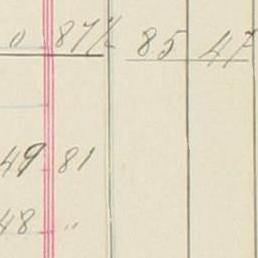 0 87½ 85 47
49 81
48 "